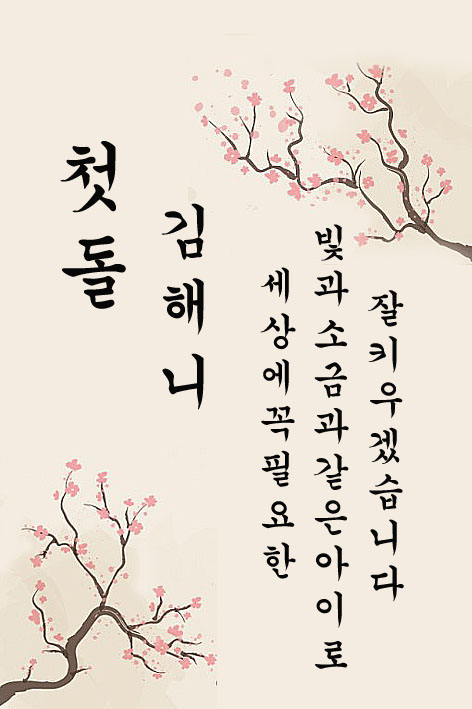 첫돌
김해니
세상에꼭필요한
빛과소금과같은아이로
잘키우겠습니다